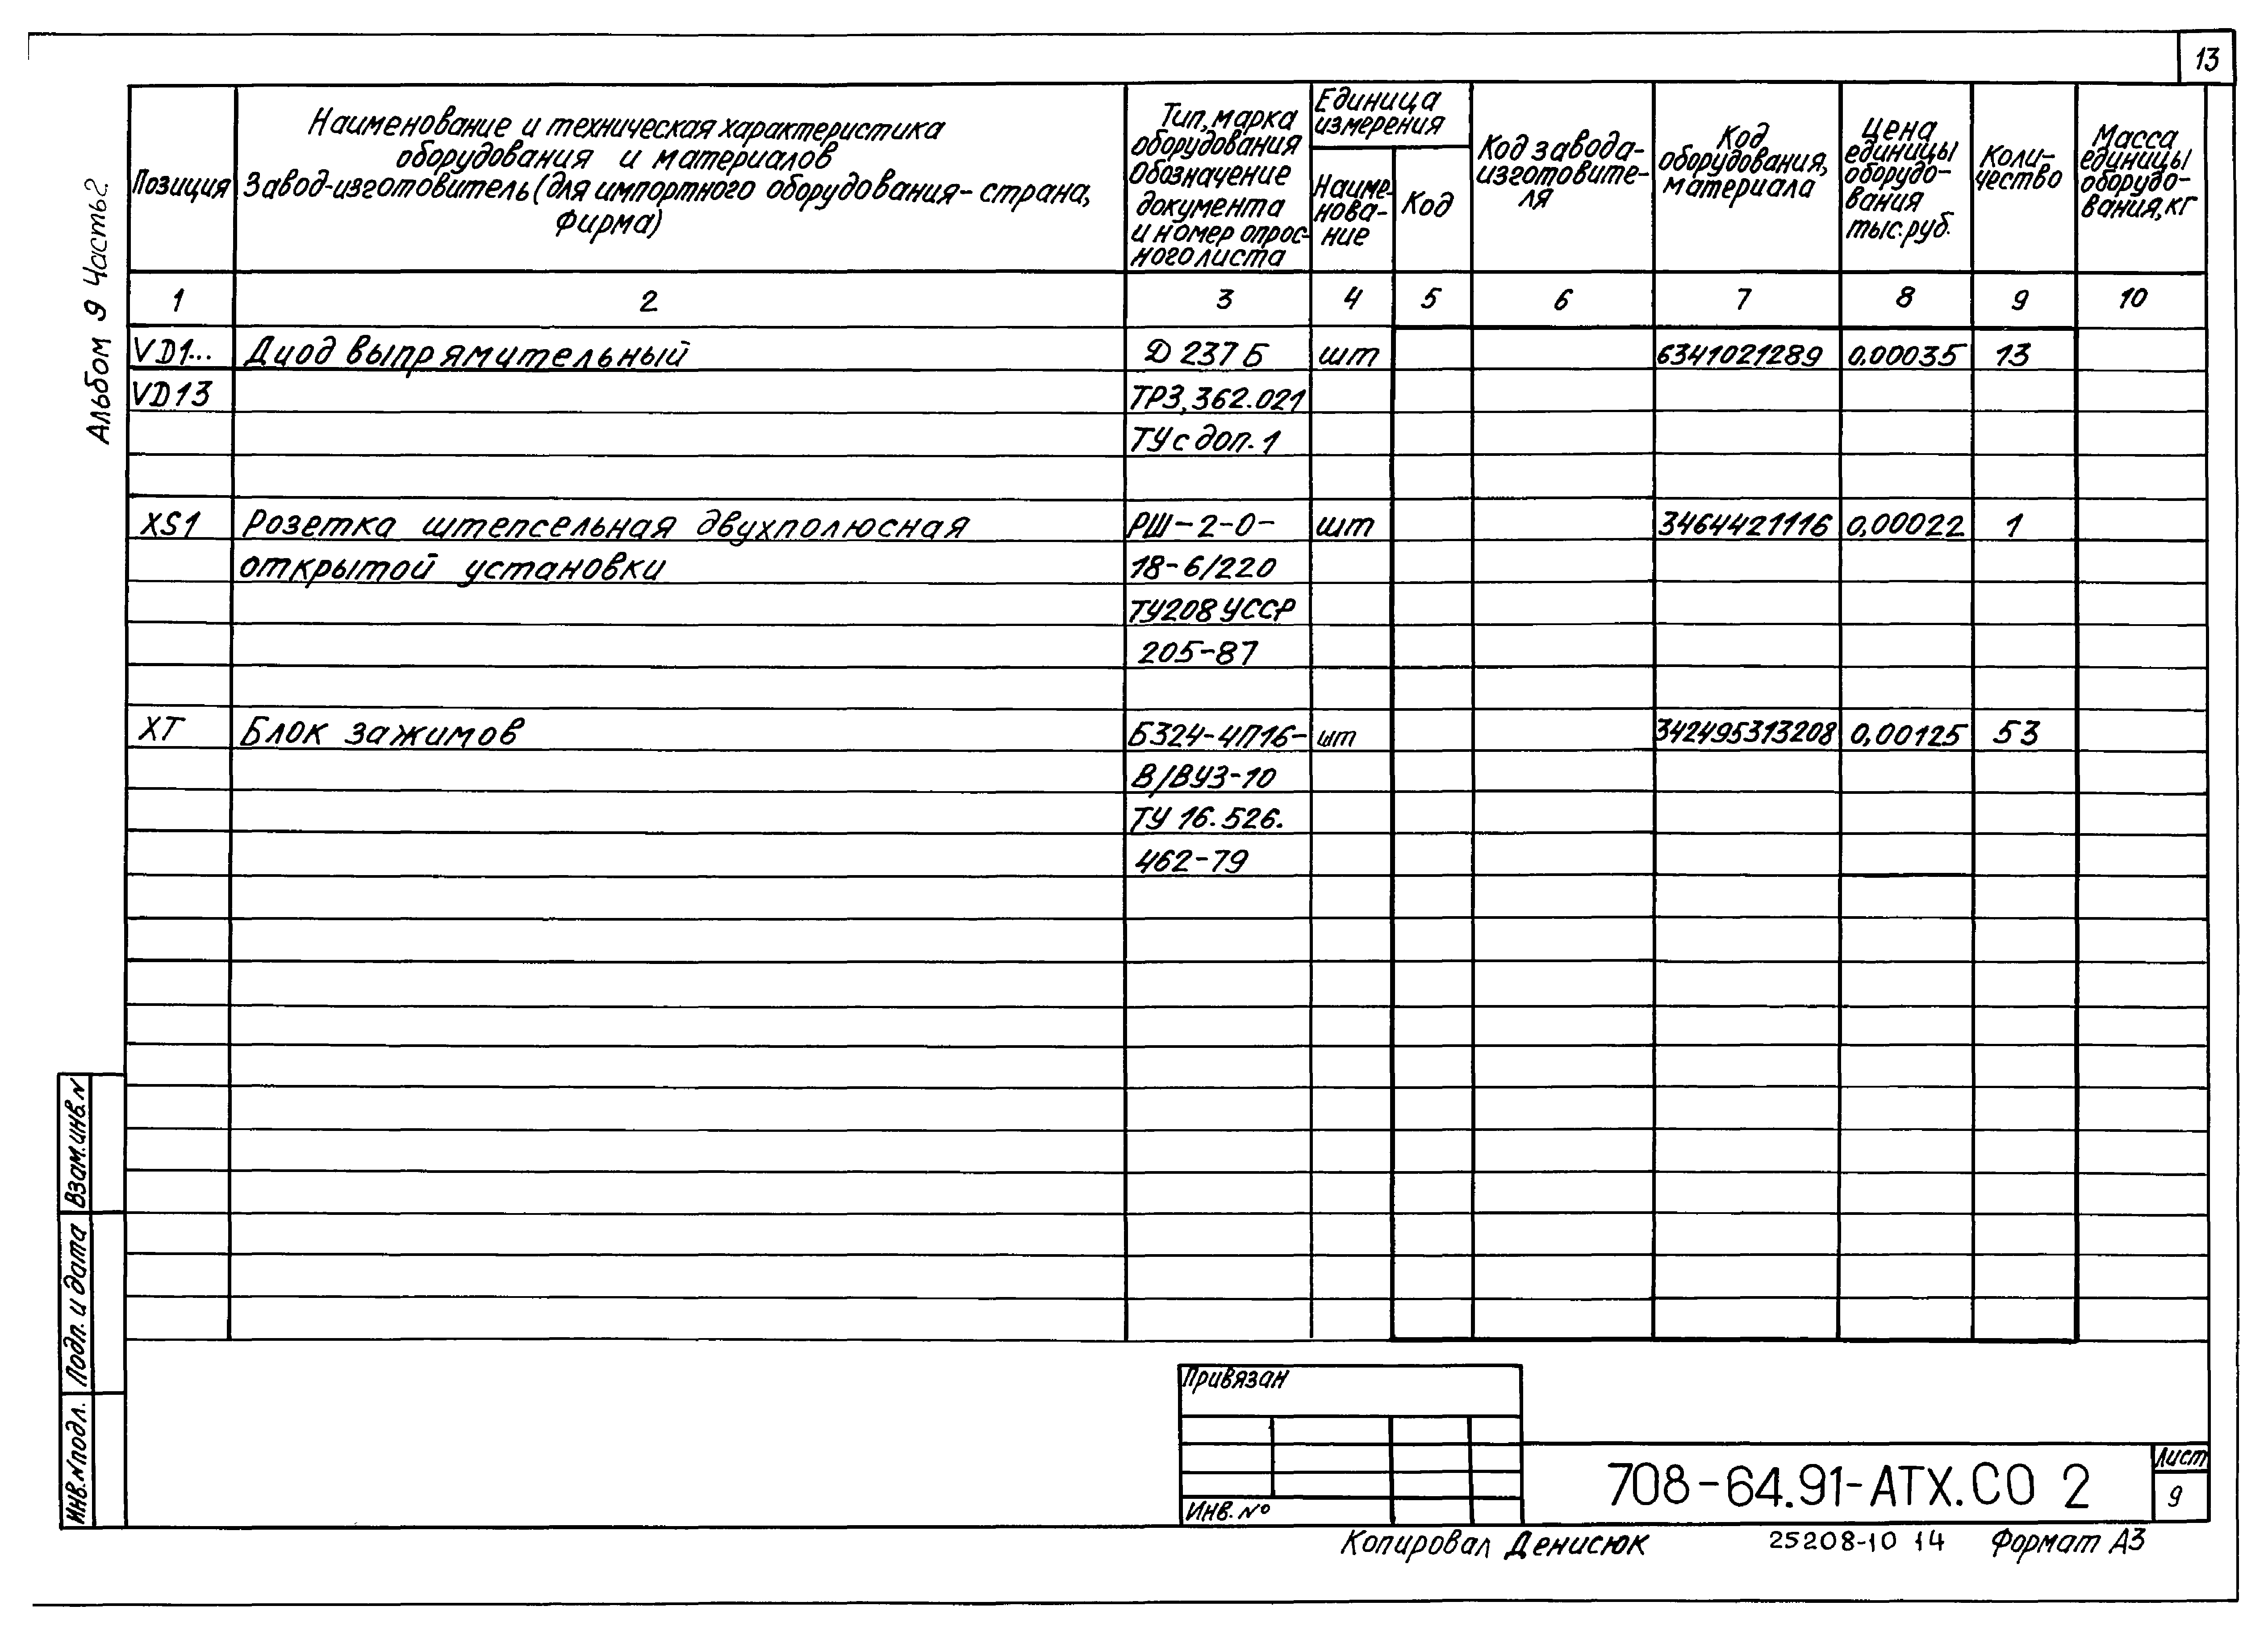 13
Альбом 9 Часть2
Позиция
Наименование и техническая характеристика
оборудования и материалов
Завод-изготовитель (для импортного оборудования - страна,
фирма)
Тип, марка
оборудования
Обозначение
документа
и номер опрос-
ного листа
Единица
измерения
Наиме-
нова-
ние
Код
Код завода-
изготовите-
ля
Код
оборудования,
материала
Цена
единицы
оборудо-
вания
тыс.руб.
Коли-
чество
Масса
единицы
оборудо-
вания, кг
1 2 3 4 5 6 7 8 9 10
VD1... Диод выпрямительный Д 237 Б шт 6341021289 0,00035 13
VD13 ТР3,362.021
ТУ с доп. 1
XS1 Розетка штепсельная двухполюсная РШ-2-0- шт 3464421116 0,00022 1
открытой установки 18-6/220
ТУ208 УССР
205-87
XT Блок зажимов Б324-4П16- шт 342495313208 0,00125 53
В/ВУ3-10
ТУ 16.526.
462-79
Взам.инв.N
Подп. и дата
Инв.N подл.
Привязан
Инв. №
708-64.91-АТХ.СО 2
Лист
9
Копировал Денисюк 25208-10 14 Формат А3